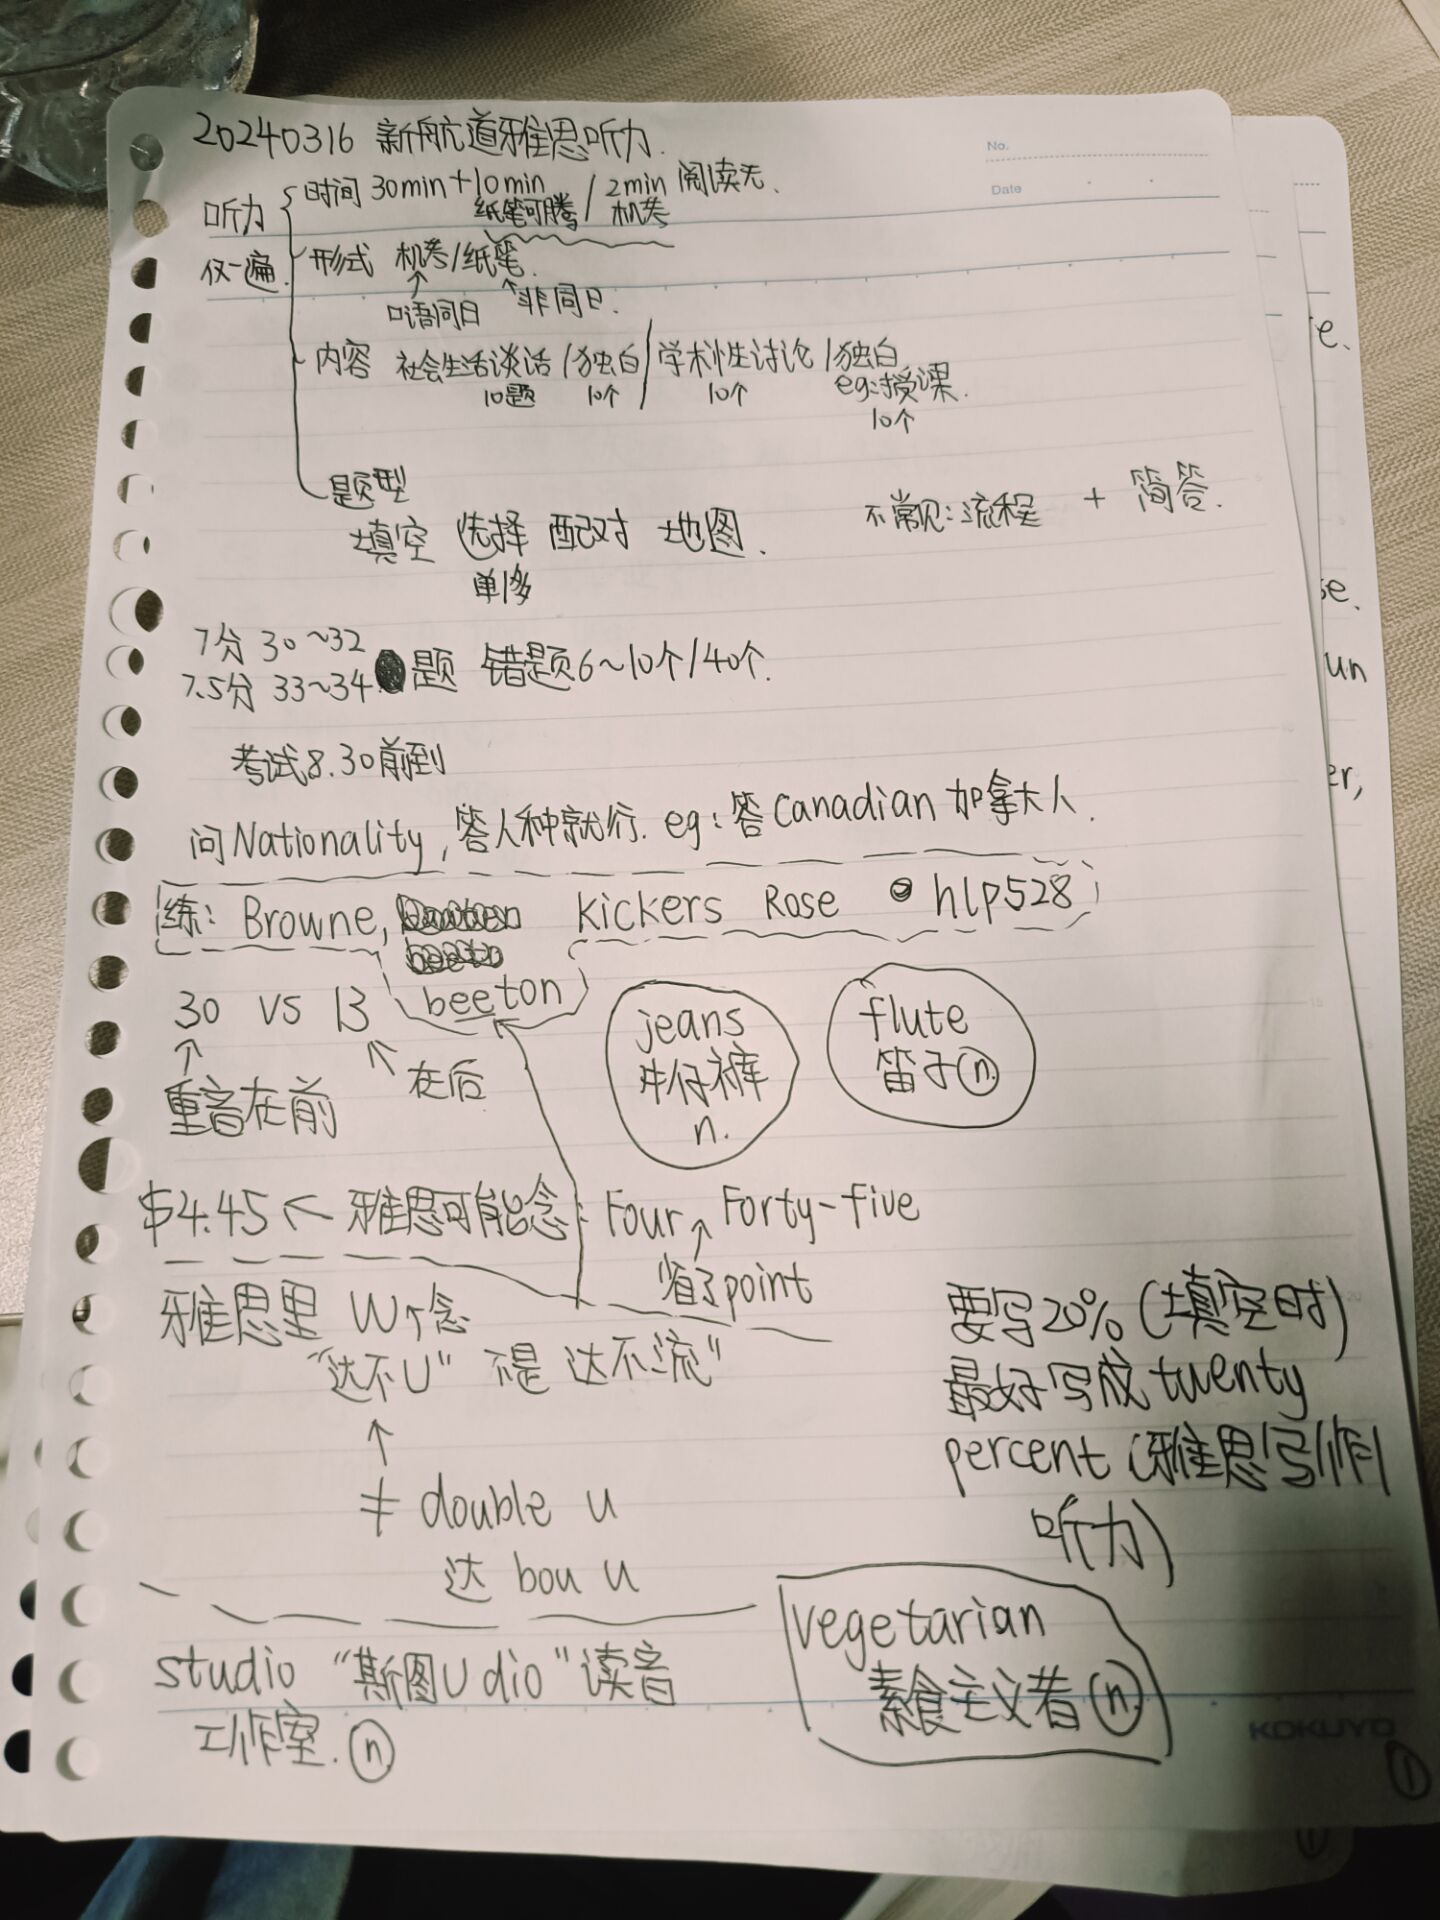 20240316 新航道雅思听力.
No.
Date
听力
仅一遍
时间 30min+10min / 2min 阅读无.
纸笔可腾 机考
形式 机考/纸笔.
口语同日 非同日.
内容 社会生活谈话/独白/学术性讨论/独白
10题 10个 10个 eg:授课.
10个
题型
填空 选择 配对 地图. 不常见:流程 + 简答.
单/多
7分 30~32
7.5分 33~34 题 错题6~10个/40个.
考试8.30前到
问Nationality,答人种就行. eg:答Canadian加拿大人.
练: Browne, kickers Rose hlp528
beeton
30 vs 13
重音在前 在后
jeans
牛仔裤
n.
flute
笛子 n.
$4.45 ← 雅思可能念: Four Forty-five
省了point
雅思里 W 念
"达不U" 不是 达不流"
≠ double u
达 bou u
要写20%(填空时)
最好写成twenty
percent (雅思写作/
听力)
studio "斯图U dio"读音
工作室. n
vegetarian
素食主义者 n.
KOKUYO
1
e.
se.
un
er,